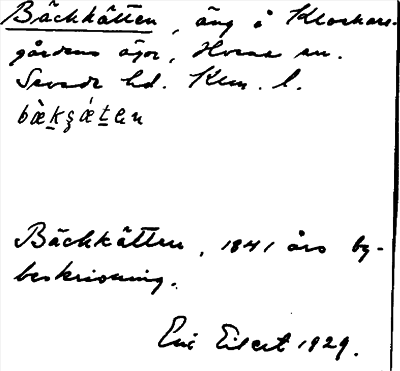 Bäckkätten, äng å Klockare-
gårdens ägor, Horns sn.
Sevede hd. Klm. l.
bæ̀kʂǽten
Bäckkätten, 1841 års by-
beskrivning.
Eric Eilert 1929.